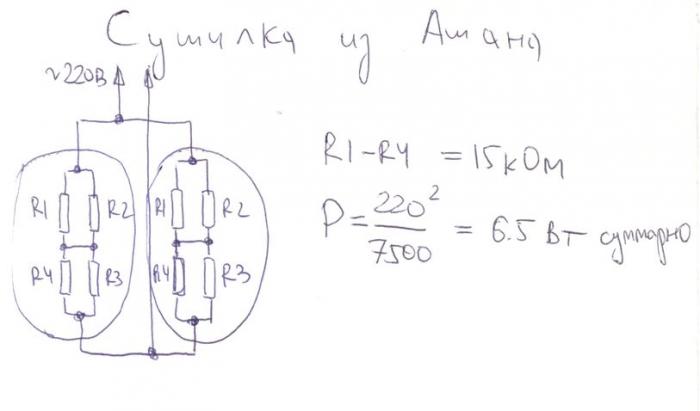 Сушилка из Ашана
~220В
R1-R4 = 15кОм
P = 220² / 7500 = 6.5 Вт суммарно
R1 R2 R1 R2
R4 R3 R4 R3